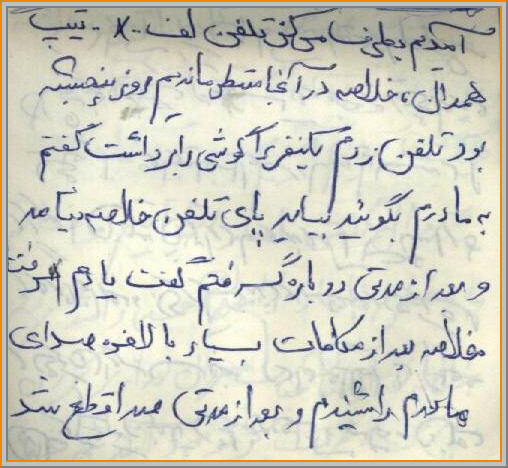 آمدیم
همدان، خلاصه در آنجا منتظر ماندیم روز پنجشنبه
بود تلفن زدم یکنفر گوشی را برداشت گفتم
به مادرم بگوئید بیاید پای تلفن خلاصه نیامد
و بعد از مدتی دوباره گرفتم گفت یادم رفت
خلاصه بعد از مکافات بسیار بالاخره صدای
مادرم را شنیدم و بعد از مدتی صدا قطع شد